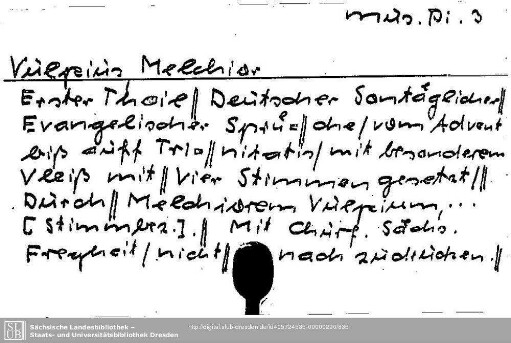 Mus. Pi. 3
Vulpius, Melchior
Erster Theil|| Deutscher Sontåglicher||
Evangelischer Sprů=||che/vom Advent
biß auff Tri=||nitatis/mit besonderem
Vleiß mit|| Vier Stimmen gesetzt/||
Durch|| Melchiorem Vulpium,...
[Stimmbez.].|| Mit Churf. Såchs.
Freyheit/nicht|| nach zudrucken.||
SLUB
Sächsische Landesbibliothek –
Staats- und Universitätsbibliothek Dresden